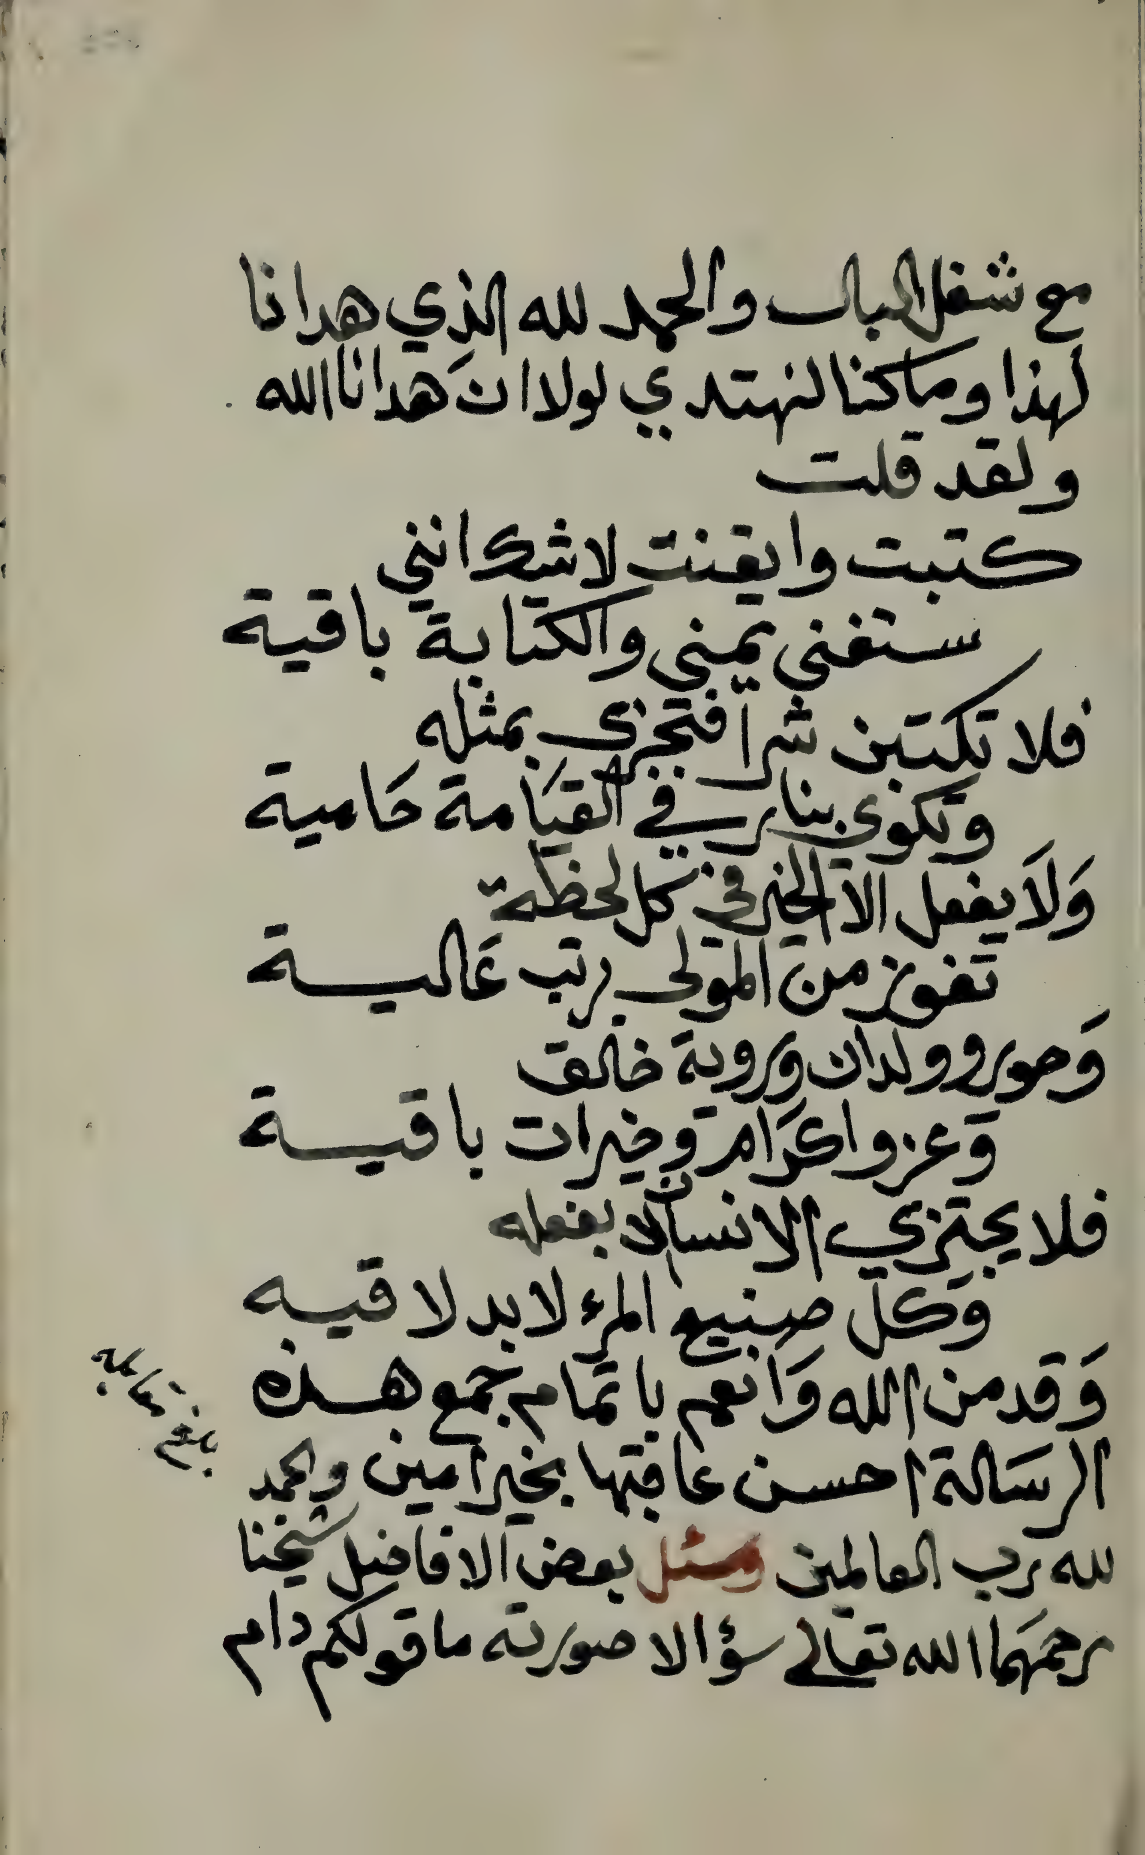 مع شغل البال والحمد لله الذي هدانا
لهذا وما كنا لنهتدي لولا ان هدانا الله
ولقد قلت
كتبت وايقنت لاشك انني
ستفنى يميني والكتابة باقية
فلا تكتبن شرا فتجزى بمثله
وتكوى بنار في القيامة حامية
ولا يفعل الا الخير في كل لحظة
تفوز من المولى برتب عالية
وحور وولدان وروية خالق
وعز واكرام وخيرات باقية
فلا يجتزي الانسان الا بفعله
وكل صنيع المرء لا بد لاقيه
وقد من الله وانعم باتمام جمع هذه
الرسالة احسن عاقبتها بخير امين والحمد
لله رب العالمين وسئل بعض الافاضل شيخنا
رحمهما الله تعالى سؤالا صورته ما قولكم دام
بلغ مقابلة